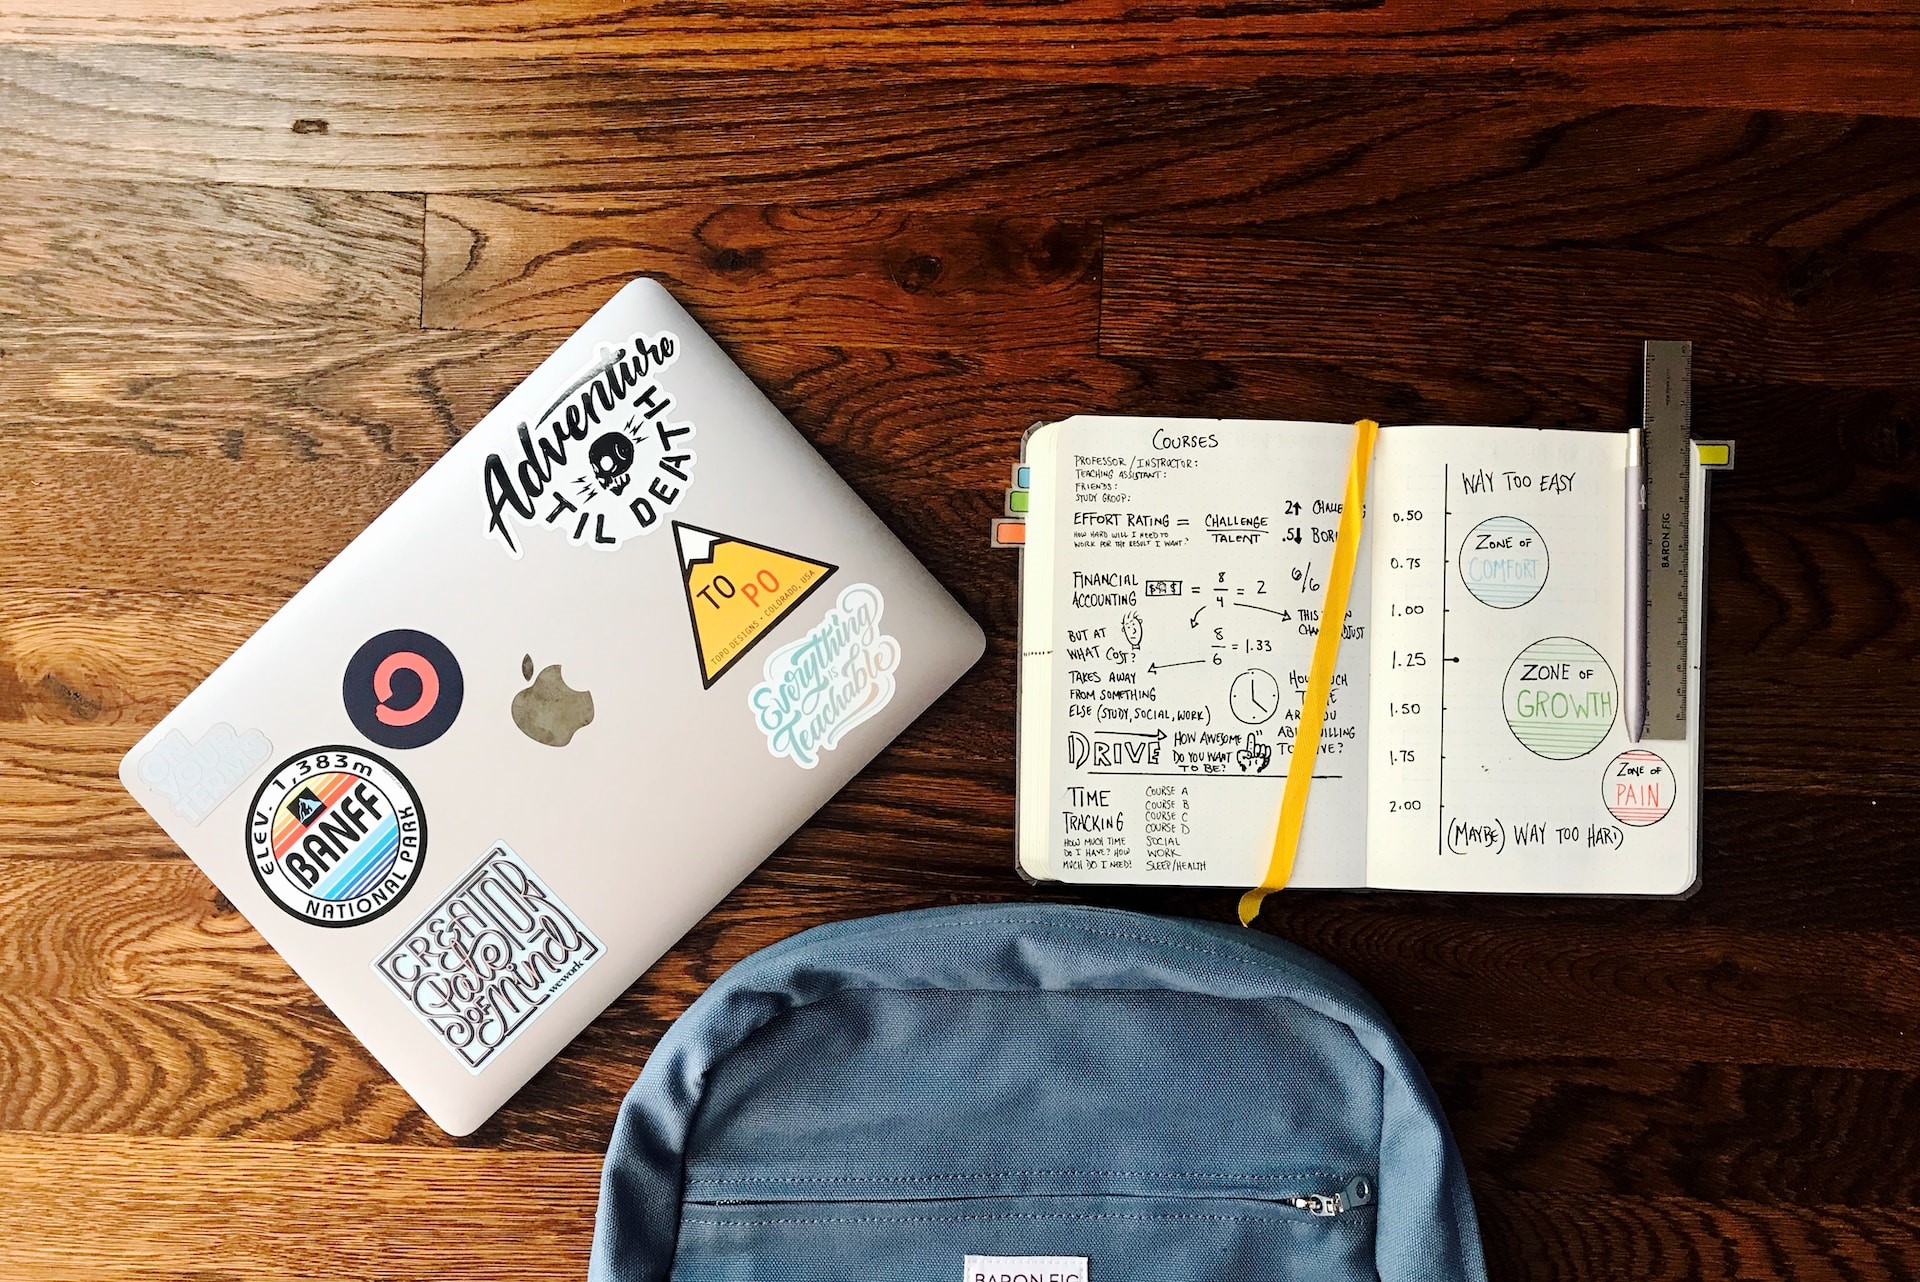 Adventure
TIL DEATH
TO PO
TOPO DESIGNS • COLORADO, USA
Everything
IS
Teachable
ON
YOUR
TERMS
ELEV. 1,383m
BANFF
NATIONAL PARK
CREATOR
STATE OF
Mind
wework
COURSES
PROFESSOR / INSTRUCTOR:
TEACHING ASSISTANT:
FRIENDS:
STUDY GROUP:
EFFORT RATING = CHALLENGE
TALENT
HOW HARD WILL I NEED TO
WORK FOR THE RESULT I WANT?
2↑
.5↓
FINANCIAL
ACCOUNTING
$ $ = 8/4 = 2
6/6
THIS
BUT AT
WHAT COST?
8/6 = 1.33
TAKES AWAY
FROM SOMETHING
ELSE (STUDY, SOCIAL, WORK)
DRIVE
HOW AWESOME
DO YOU WANT
TO BE?
TIME
TRACKING
HOW MUCH TIME
DO I HAVE? HOW
MUCH DO I NEED?
COURSE A
COURSE B
COURSE C
COURSE D
SOCIAL
WORK
SLEEP/HEALTH
WAY TOO EASY
0.50
0.75
1.00
1.25
1.50
1.75
2.00
ZONE OF
COMFORT
ZONE OF
GROWTH
ZONE OF
PAIN
(MAYBE) WAY TOO HARD
BARON FIG
BARON FIG